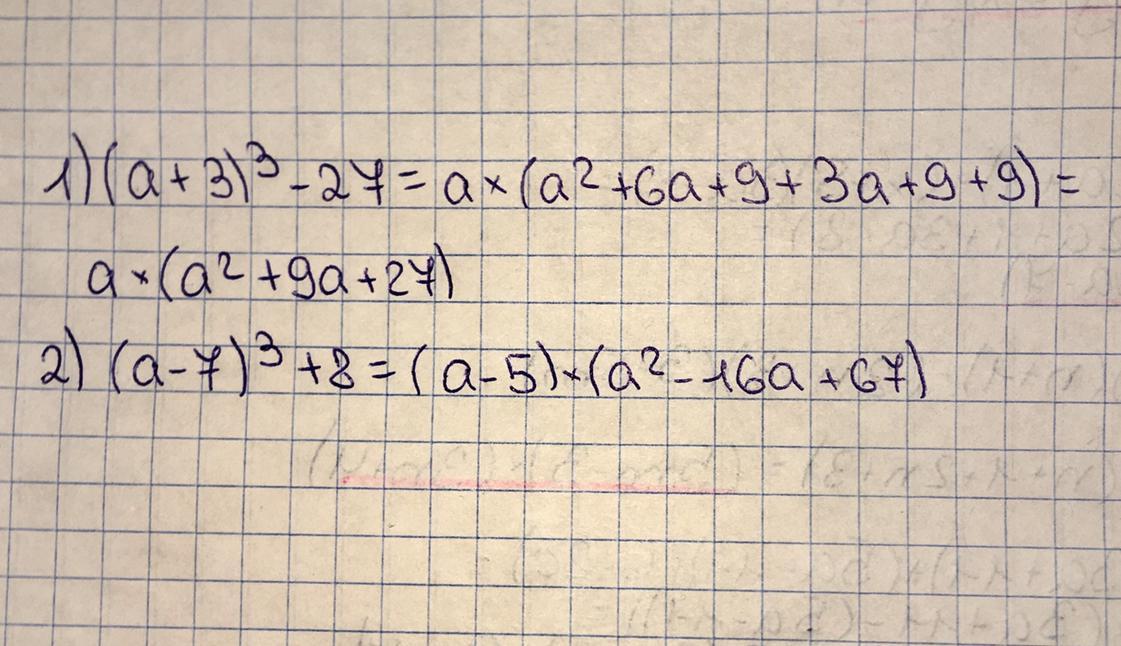 1) (a+3)³ - 27 = a × (a² + 6a + 9 + 3a + 9 + 9) =
a × (a² + 9a + 27)
2) (a-7)³ + 8 = (a-5) × (a² - 16a + 67)